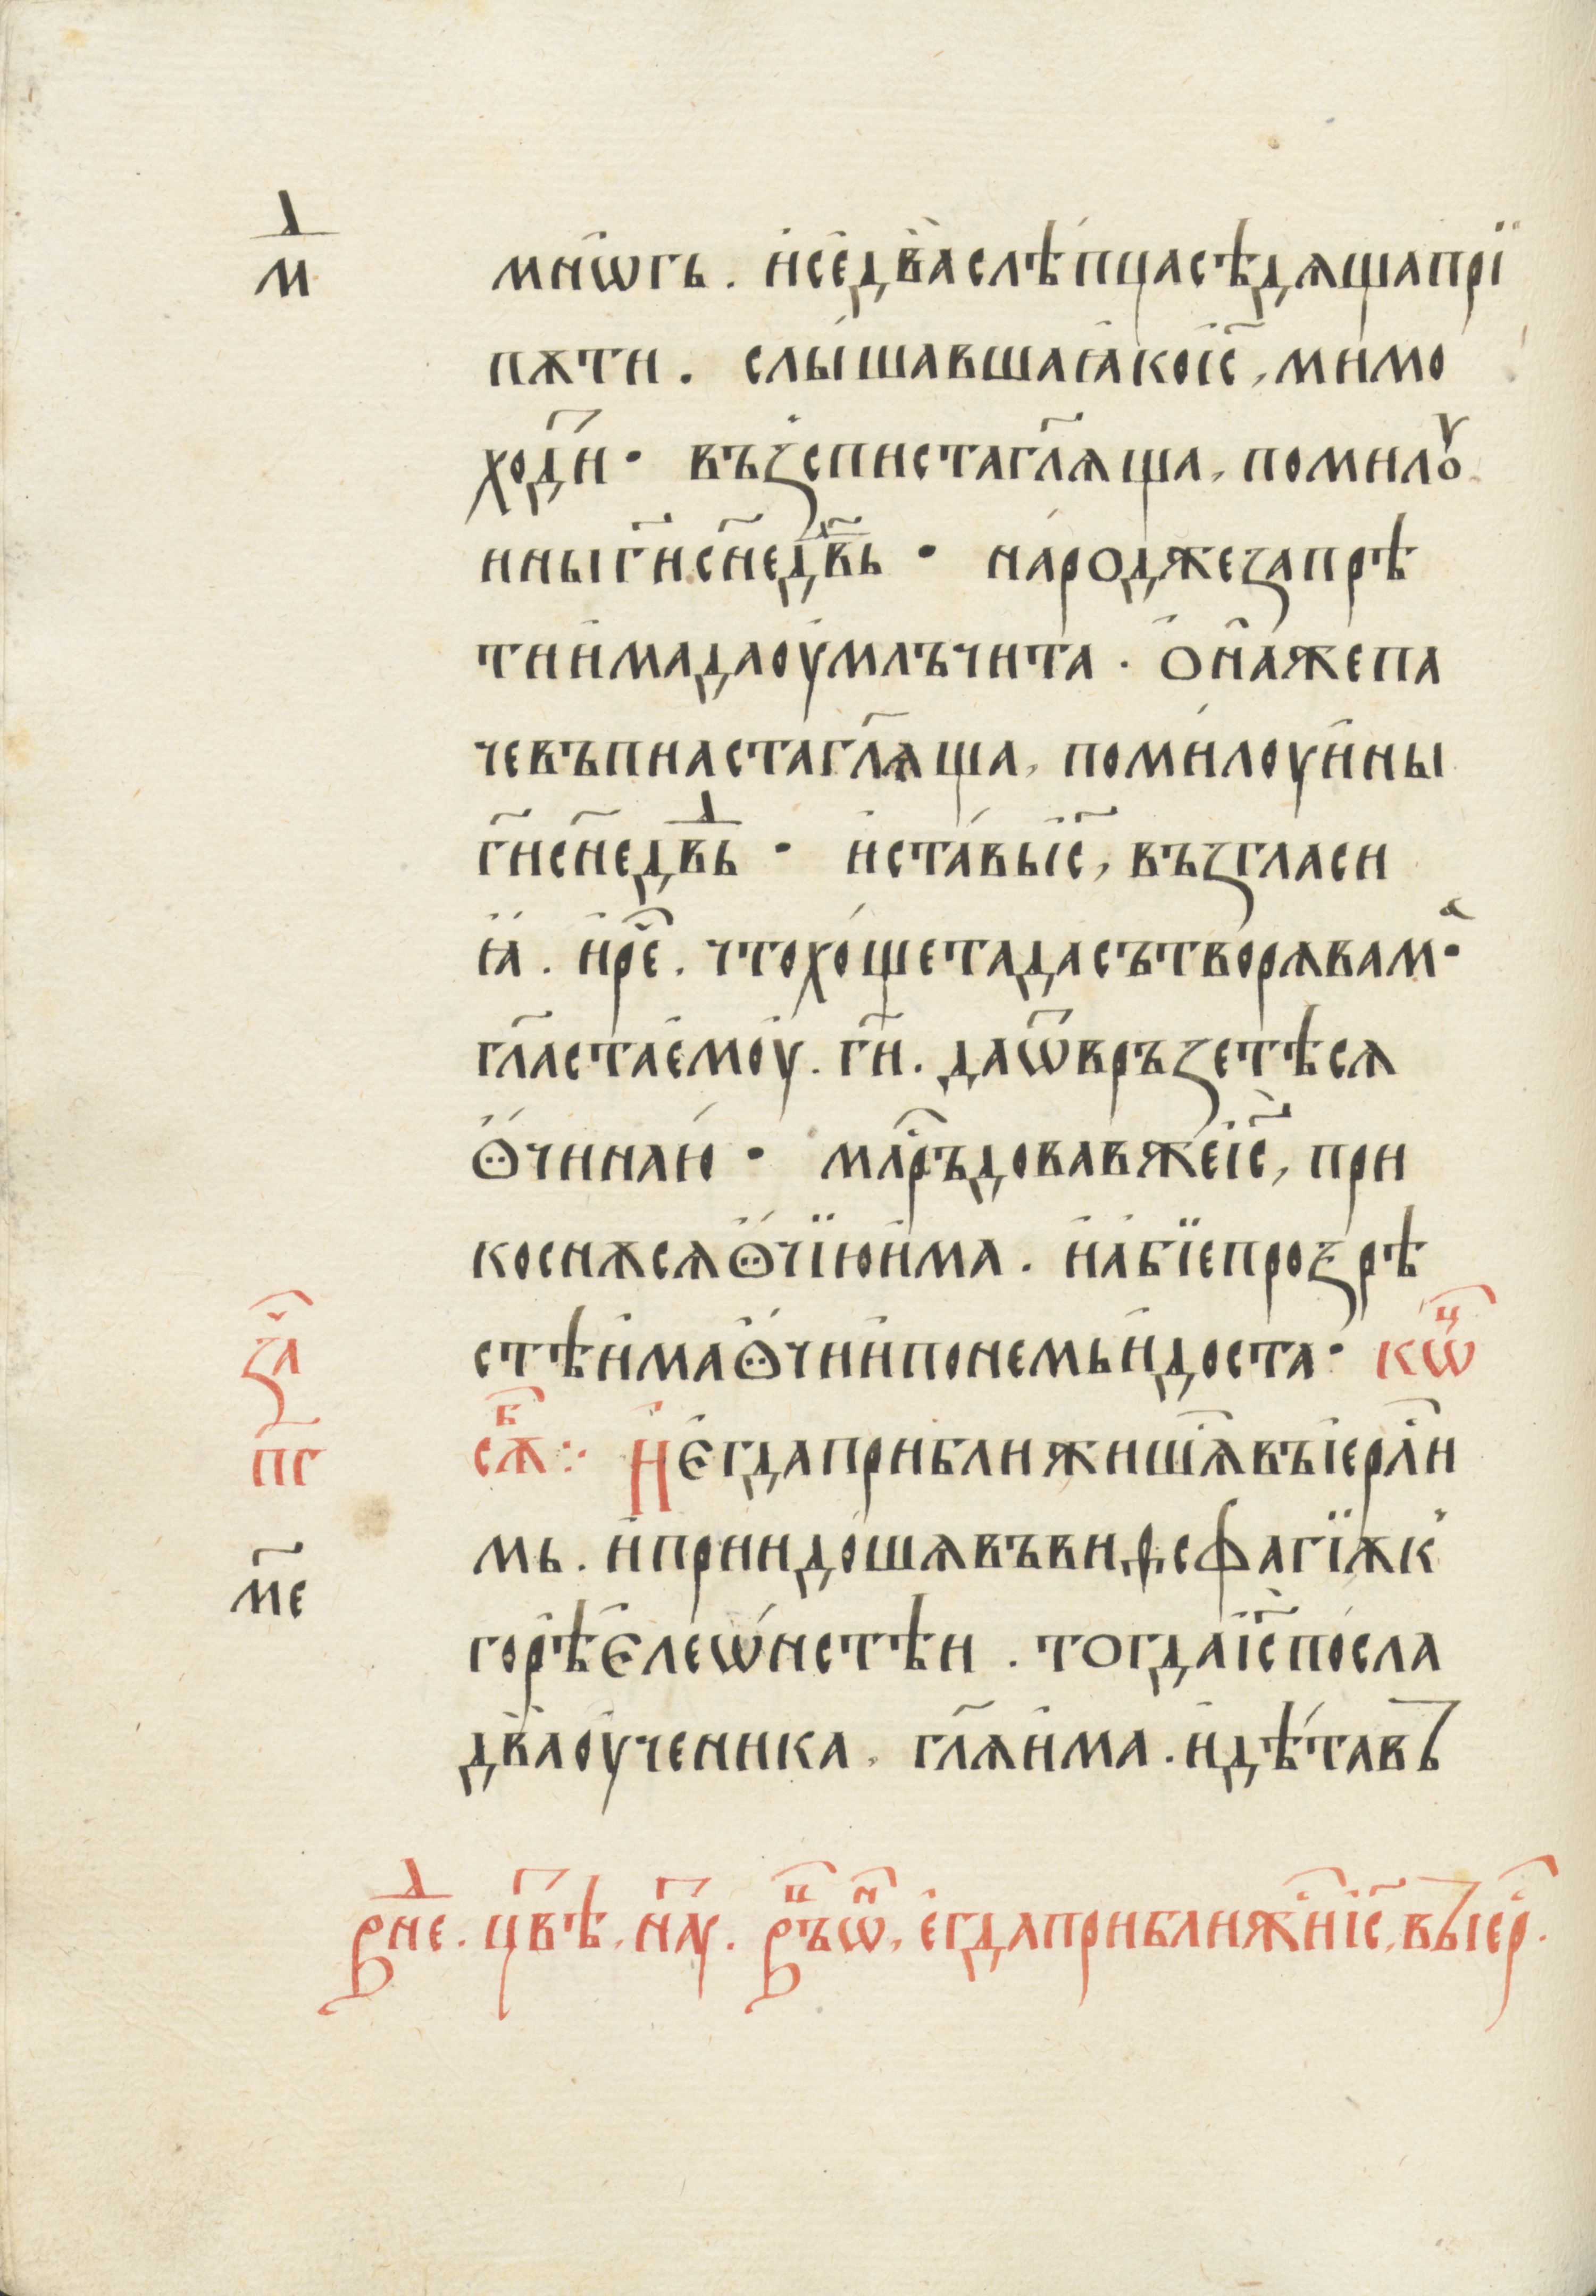 м҃д
мнѡ҆гъ . и҆се҆два̀слѣ́пцасѣдѧщапрѝ
пѫти . слы́шавшаꙗ҆коі҆с҃ , мимо
ходи҃ · въꙁⷭ҇писта гл҃ѧща , помилꙋ
нныг҃исн҃едв҃ⷣь · на́родже ꙁапрѣ
тии҆мадаоу҆млъчита . ѻ҆на҆жепа
чевъпиастагл҃ѧща , поми́лоуи҆ны
г҃исн҃едвⷣь · и҆ста́вьі҆с҃ , въꙁгласи
ꙗ҆̀ . и҆рⷱ҇е . чтохо́щетадасътворѧвамⷶ ·
гл҃астае҆моу҆ . г҃и . даѿвръꙁетѣсѧ
ѻ҆́чинаю҆ · млⷭ҇рьдовавжеі҆с҃ , при
коснѫсѧѻ҆́чїюи҆ма . и҆а҆бїепроꙁрѣ
стѣи҆маѻ҆́чии҆понемьи҆доста · кѡⷰ҇
ꙁаⷱ҇
сѫⷠ҇ :· И҆е҆гдаприближишѧⷭ҇въі҆ерⷭ҇ли
пг
мь . и҆приидо́шѧвъвиѳсфагїѫк̾
м҃е
горѣ҆Е҆леѡ́нстѣи . тогдаі҆с҃по́сла
два̀оу҆ченика , гл҃ѧи҆ма . и҆дѣ́тавъ
внⷣе . цвⷮѣ . наⷮꙋ . въⷫ҇ѡⷩ҇ , е҆гдаприближиⷭ҇і҆с҃ , въі҆ерⷭ҇ .